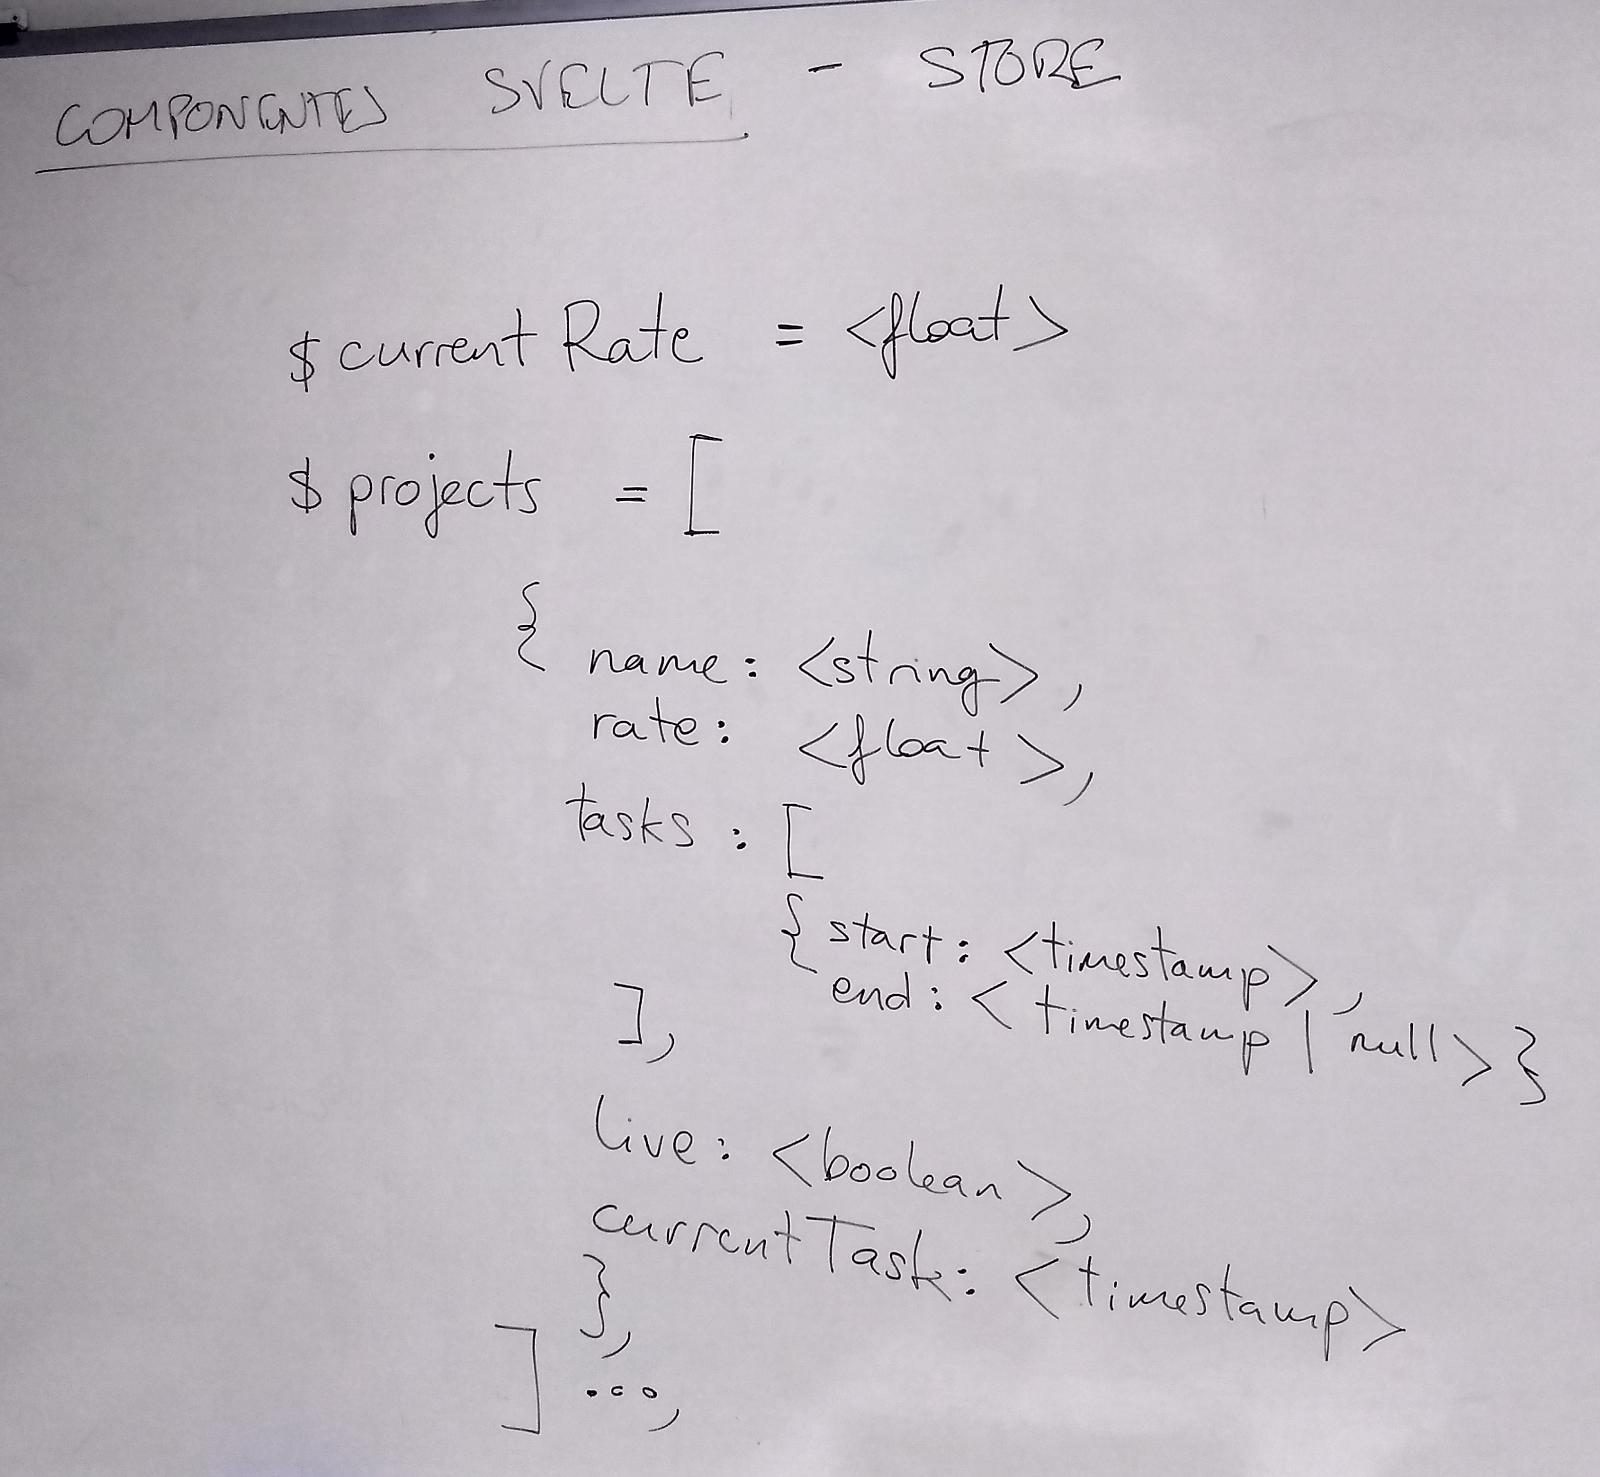 COMPONENTES SVELTE - STORE
$currentRate = <float>
$projects = [
{ name: <string>,
rate: <float>,
tasks: [
{ start: <timestamp>,
end: <timestamp | null> }
],
live: <boolean>,
currentTask: <timestamp>
},
] ...,